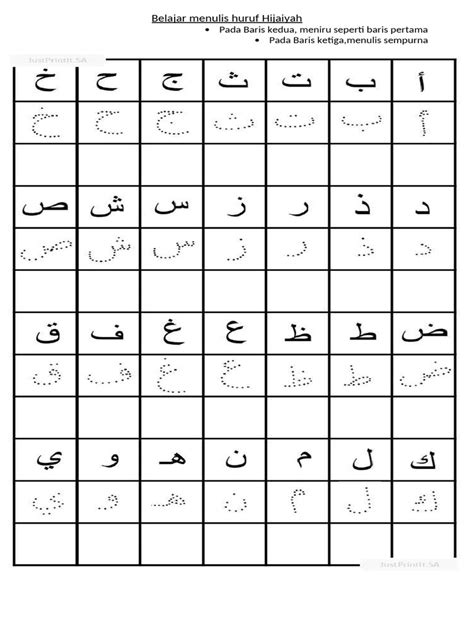 Belajar menulis huruf Hijaiyah
• Pada Baris kedua, meniru seperti baris pertama
• Pada Baris ketiga,menulis sempurna
JustPrintIt SA
أ ب ت ث ج ح خ
أ ب ت ث ج ح خ
د ذ ر ز س ش ص
د ذ ر ز س ش ص
ض ط ظ ع غ ف ق
ض ط ظ ع غ ف ق
ك ل م ن هـ و ي
ك ل م ن هـ و ي
JustPrintIt SA